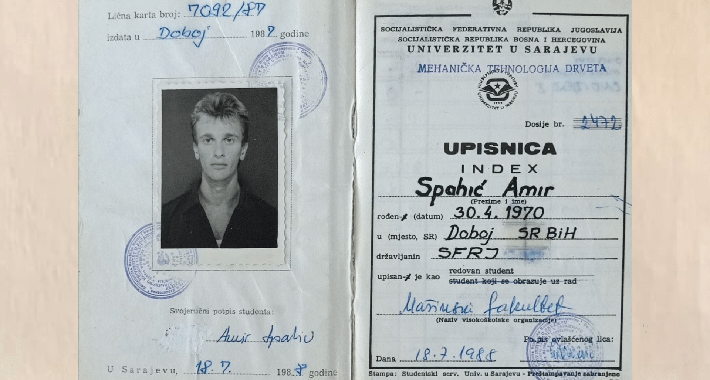 Lična karta broj: 7092/87
izdata u Doboj 1987 godine
Svojeručni potpis studenta:
Amir Spahić
U Sarajevu, 18. 7. 1988 godine
SOCIJALISTIČKA FEDERATIVNA REPUBLIKA JUGOSLAVIJA
SOCIJALISTIČKA REPUBLIKA BOSNA I HERCEGOVINA
UNIVERZITET U SARAJEVU
MEHANIČKA TEHNOLOGIJA DRVETA
Dosije br. 2472
UPISNICA
INDEX
Spahić Amir
(Prezime i ime)
rođen (datum) 30.4.1970
u (mjesto, SR) Doboj SR BiH
državljanin SFRJ
upisan je kao redovan student
student koji se obrazuje uz rad
Mašinski fakultet
(Naziv visokoškolske organizacije)
Potpis ovlašćenog lica:
Dana 18.7.1988
Štampa: Studentski serv. Univ. u Sarajevu - Preštampavanje zabranjeno